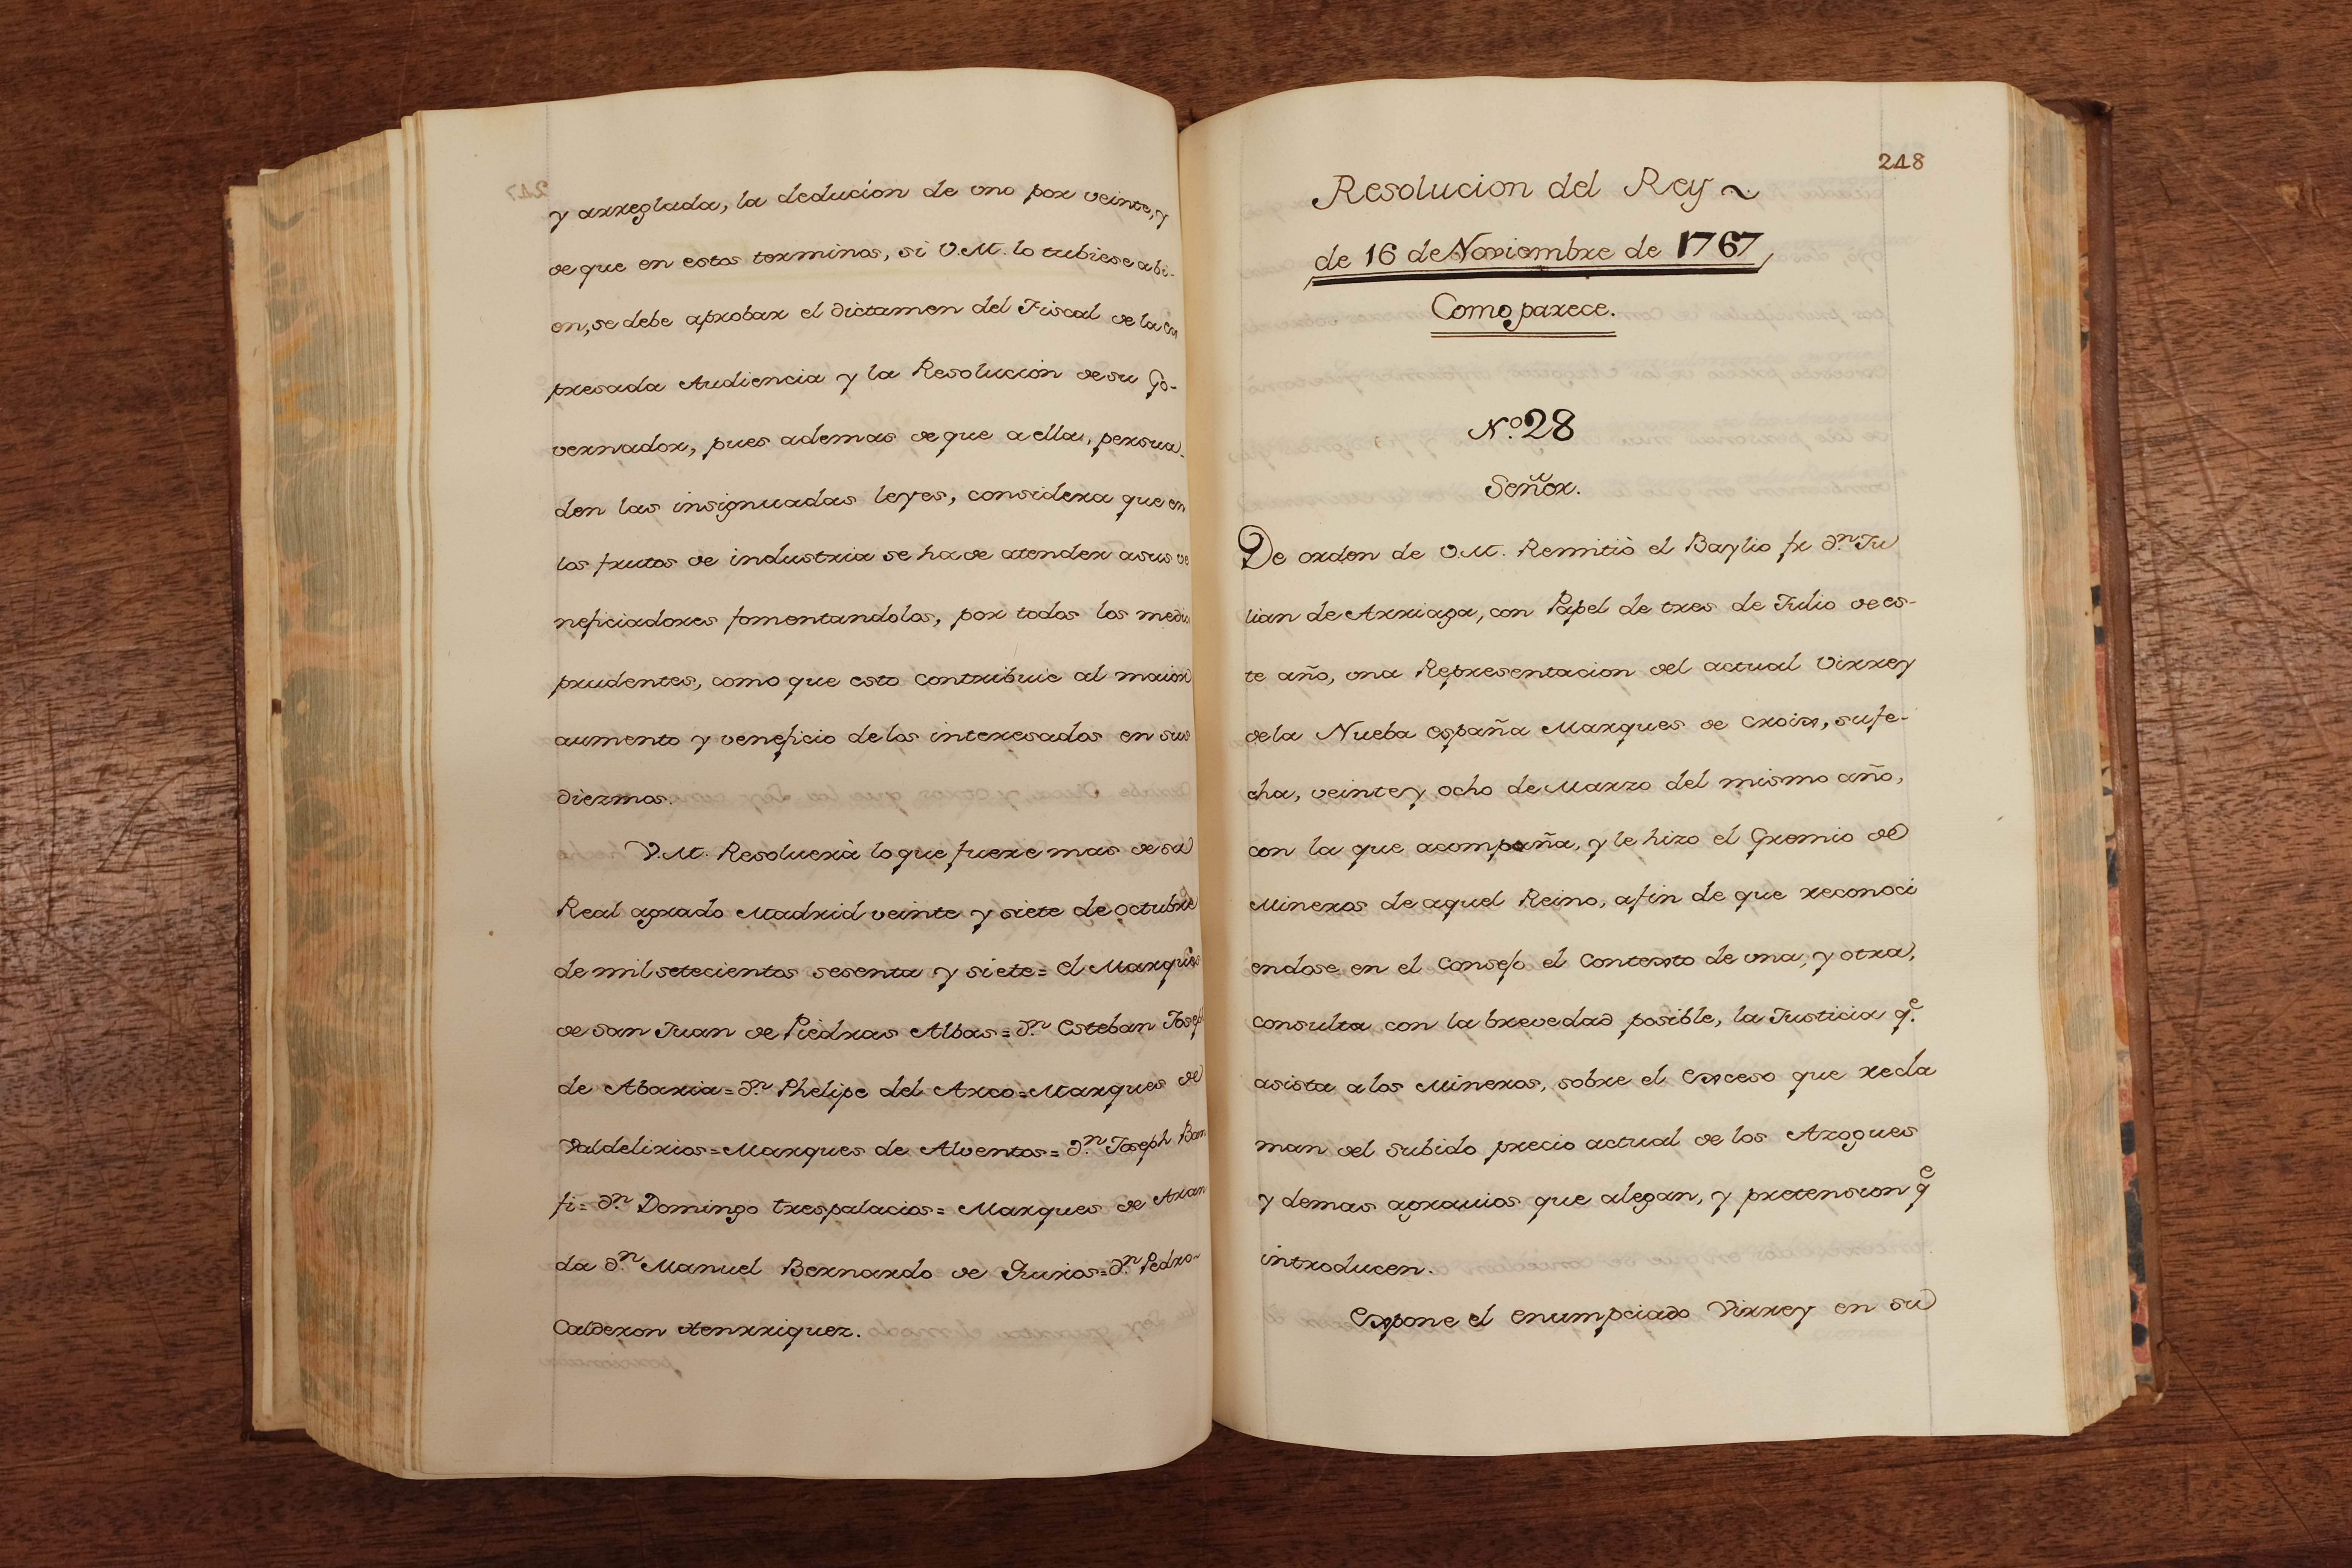 y arreglada, la deducion de uno por veinte, y
de que en estos terminos, si V.M. lo tubiese a bi-
en, se debe aprobar el dictamen del Fiscal de la ex
presada Audiencia y la Resolución de su Go-
vernador, pues ademas de que a ella, persua-
den las insignuadas leyes, considera que en
los frutos de industria se ha de atender a sus ve
neficiadores fomentandolos, por todos los medios
prudentes, como que esto contribuie al maior
aumento y veneficio de los interesados en sus
diezmos.
V.M. Resoluerà lo que fuere mas de su
Real agrado Madrid veinte y siete de octubre
de mil setecientos sesenta y siete = el Marques
de San Juan de Piedras Albas = Dn. Esteban Joseph
de Abaria = Dn. Phelipe del Arco = Marques de
Valdelirios = Marques de Alventos = Dn. Joseph Ban
fi = Dn. Domingo trespalacios = Marques de Aran
da Dn. Manuel Bernardo de Quiros = Dn. Pedro
Calderon Henrriquez.
248
Resolucion del Rey
de 16 de Noviembre de 1767
Como parece.
No. 28
Señor.
De orden de V.M. Remitiò el Baylio fr Dn. Ju
lian de Arriaga, con Papel de tres de Julio de es-
te año, una Representacion del actual Virrey
de la Nueba españa Marques de Croix, su fe-
cha, veinte y ocho de Marzo del mismo año,
con la que acompaña, y le hizo el Gremio de
Mineros de aquel Reino, a fin de que reconoci
endose en el Consejo el Contexto de una, y otra,
consulta con la brevedad posible, la Justicia qe.
asista a los Mineros, sobre el Exceso que recla
man del subido precio actual de los Azogues
y demas agrauios que alegan, y pretension qe
introducen.
Expone el enumpciado Virrey en su